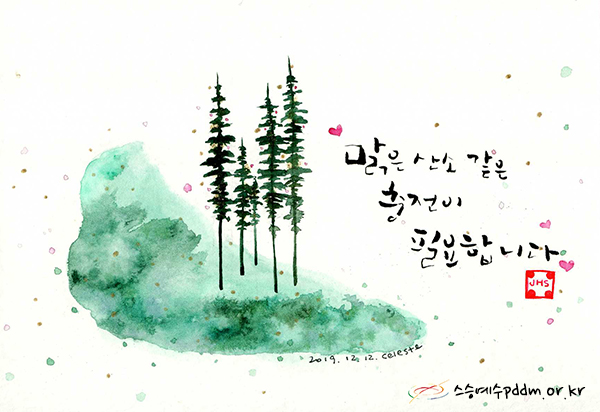 맑은 산소 같은
충전이
필요합니다
JHS
2019. 12. 12. celeste
스승예수pddm.or.kr